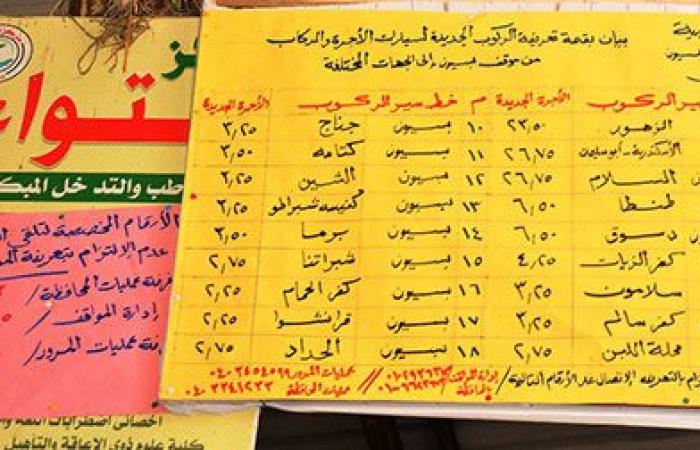 بيان بقيمة تعريفة الركوب الجديدة لسيارات الأجرة والركاب
من موقف بسيون إلى الجهات المختلفة
الركوب الأجرة الجديدة م خط سير الركوب الأجرة الجديدة
الزهور ٢٣,٥٠ ١٠ بسيون جناج ٣,٢٥
الأسكندرية - أبو سليمان ٢٦,٧٥ ١١ بسيون كتامه ٣,٥٠
السلام ٢٦,٧٥ ١٢ بسيون الشين ٢,٢٥
طنطا ٦,٥٠ ١٣ بسيون كنيسه شبراطو ٢,٢٥
دسوق ٦,٥٠ ١٤ بسيون برما ٣,٥٠
كفر الزيات ٤,٢٥ ١٥ بسيون شبراتنا ٢,٧٥
سلامون ٣,٢٥ ١٦ بسيون كفر الحمام ٢,٢٥
كفر سالم ٣,٢٥ ١٧ بسيون قرانشوا ٢,٢٥
محلة اللبن ٢,٧٥ ١٨ بسيون الحداد ٢,٧٥
بالتعريفه الاتصال على الأرقام التالية // إدارة المواقف عمليات المرور ٠٤٠٣٤٥٤٥٩٩
بالمحافظة عمليات المحافظة ٠٤٠٣٣٤١٢٣٣
الأرقام المخصصة لتلقى
عدم الالتزام بتعريفة
غرفة عمليات المحافظة
إدارة المواقف
عمليات المرور
والتدخل المبك
أخصائى اضطرابات اللغة
كلية علوم ذوى الإعاقة والتأهيل